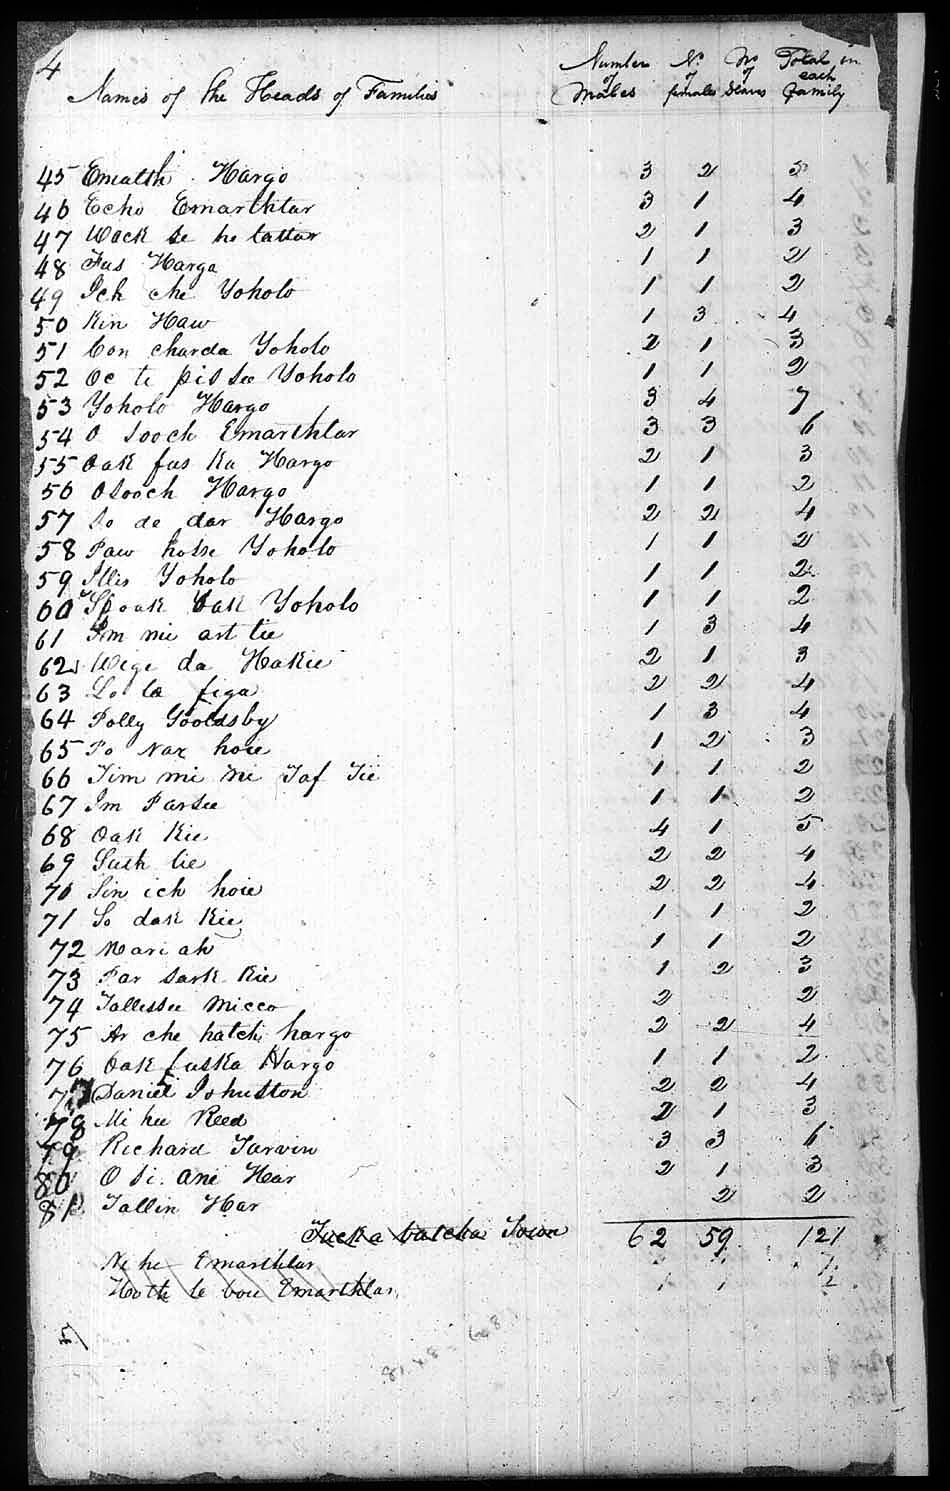 4
Names of the Heads of Families Number of Males No of females No of Slaves Total in each Family
45 Emalth Hargo 3 2 5
46 Echo Emarthlar 3 1 4
47 Wock se ho lattar 2 1 3
48 Fus Harga 1 1 2
49 Ich che Yoholo 1 1 2
50 Kin Haw 1 3 4
51 Con charda Yoholo 2 1 3
52 Oc te pis see Yoholo 1 1 2
53 Yoholo Hargo 3 4 7
54 O sooch Emarthlar 3 3 6
55 Oak fus ka Hargo 2 1 3
56 Osooch Hargo 1 1 2
57 So de dar Hargo 2 2 4
58 Paw hosse Yoholo 1 1 2
59 Illis Yoholo 1 1 2
60 Spoak oak Yoholo 1 1 2
61 Im mi art lee 1 3 4
62 Wige da Hakie 2 1 3
63 Lo la figa 2 2 4
64 Polly Gooldsby 1 3 4
65 Po Nax hoie 1 2 3
66 Tim mi Ne Taf Tie 1 1 2
67 Im Parsee 1 1 2
68 Oak Kie 4 1 5
69 Sush lie 2 2 4
70 Sin ich hoie 2 2 4
71 So dak Kie 1 1 2
72 Mariah 1 1 2
73 Par sark Kie 1 2 3
74 Tallessee Micco 2 2
75 Ar che hatchi hargo 2 2 4
76 Oak fuska Hargo 1 1 2
77 Daniel Johnston 2 2 4
78 Mi kee Reed 2 1 3
79 Richard Tarvin 3 3 6
80 O si ane Hear 2 1 3
81 Tallin Har 2 2
Tucka batcha Town 62 59 121
Ne he Emarthlar
Hoth le bou Emarthlar 1 1 2